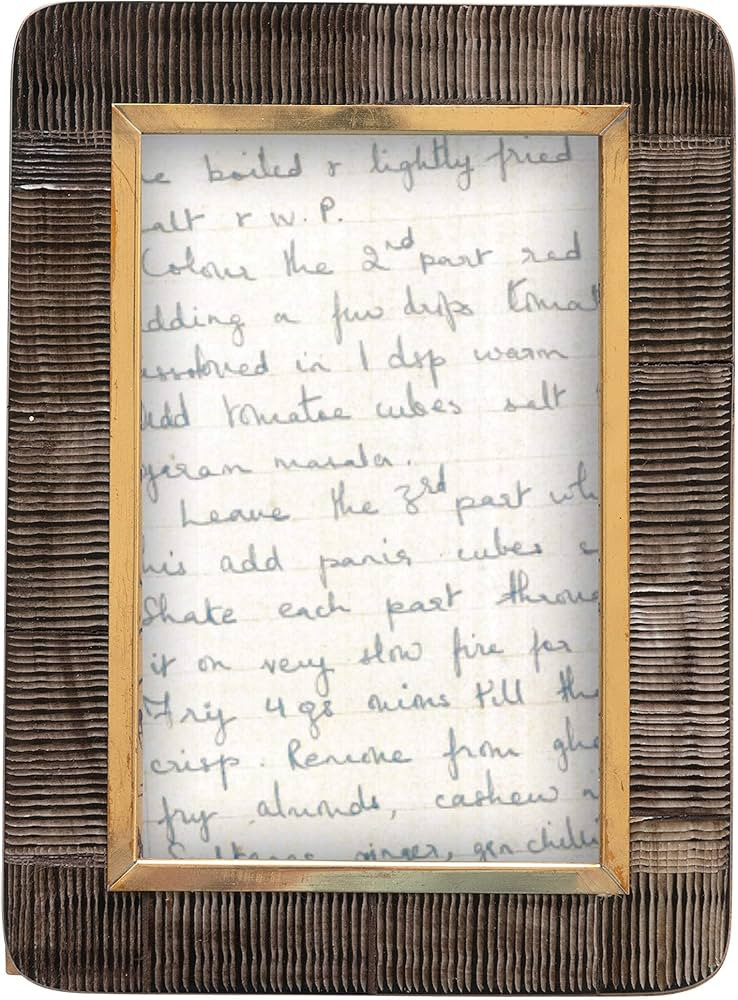 e boiled & lightly fried
alt & W.P.
Colour the 2nd part red
dding a few drps tomat
ssolved in 1 dsp warm
Add tomatoe cubes salt
garam masala.
Leave the 3rd part wh
his add panir cubes
Shake each part throu
it on very slow fire for
Fry 4 gs onions till the
crisp. Remove from ghe
fry almonds, cashew n
ginger, grn chilli